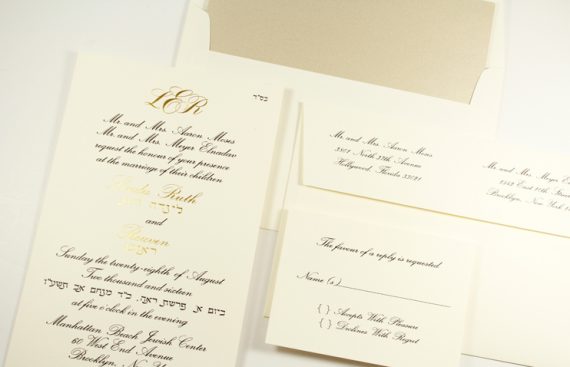 LER
בס"ד
Mr. and Mrs. Aaron Moses
Mr. and Mrs. Meyer Elnadav
request the honour of your presence
at the marriage of their children
Linda Ruth
לינדה רות
and
Reuven
ראובן
Sunday the twenty-eighth of August
Two thousand and sixteen
ביום א, פרשת ראה, כ'ד מנחם אב תשע"ו
at five o'clock in the evening
Manhattan Beach Jewish Center
60 West End Avenue
Brooklyn, New
Mr. and Mrs. Aaron Moses
3801 North 37th Avenue
Hollywood, Florida 33021
Mr. and Mrs. Meyer E
East 11
Brooklyn, New
The favour of a reply is requested
Name(s)
( ) Accepts With Pleasure
( ) Declines With Regret